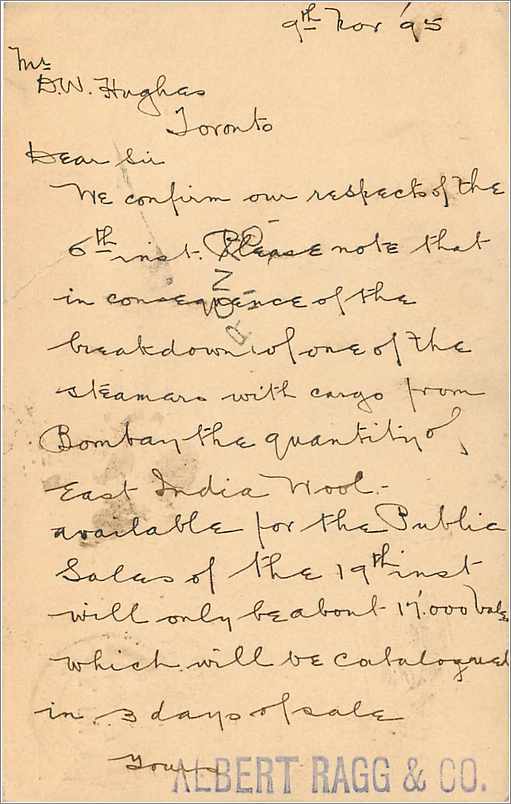 9th Nov '95
Mr
D.W. Hughes
Toronto
Dear Sir
We confirm our respects of the
6th inst. Please note that
in consequence of the
breakdown of one of the
steamers with cargo from
Bombay the quantity of
East India Wool -
available for the Public
Sales of the 19th inst
will only be about 17.000 bales
which will be catalogued
in 3 days of sale
Yours
ALBERT RAGG & CO.